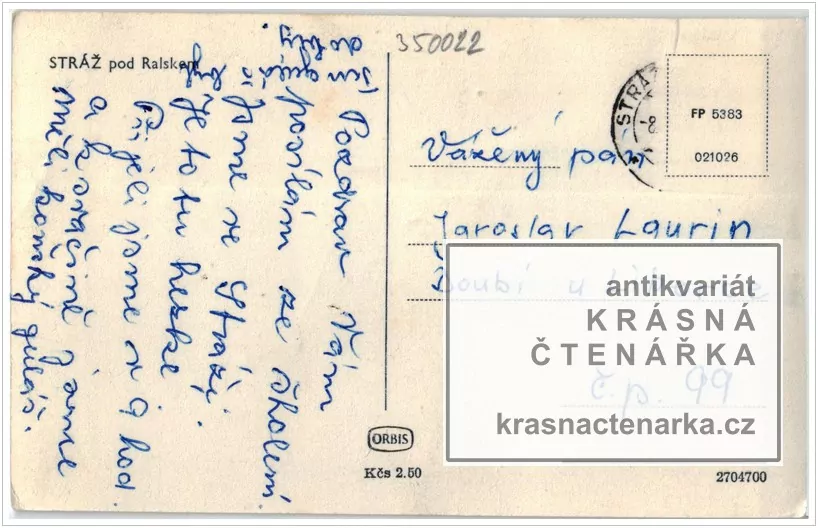 STRÁŽ pod Ralskem
350022
Pozdrav Vám
posílám ze školení.
Jsme ve Stráži.
Je to tu hezké
Přijeli jsme v 9 hod.
a k svačině jsme
měli koňský guláš.
STRÁŽ
-8
FP 5383
021026
Vážený pán
Jaroslav Laurin
Doubí u
č.p. 99
antikvariát
KRÁSNÁ
ČTENÁŘKA
krasnactenarka.cz
ORBIS
Kčs 2.50
2704700